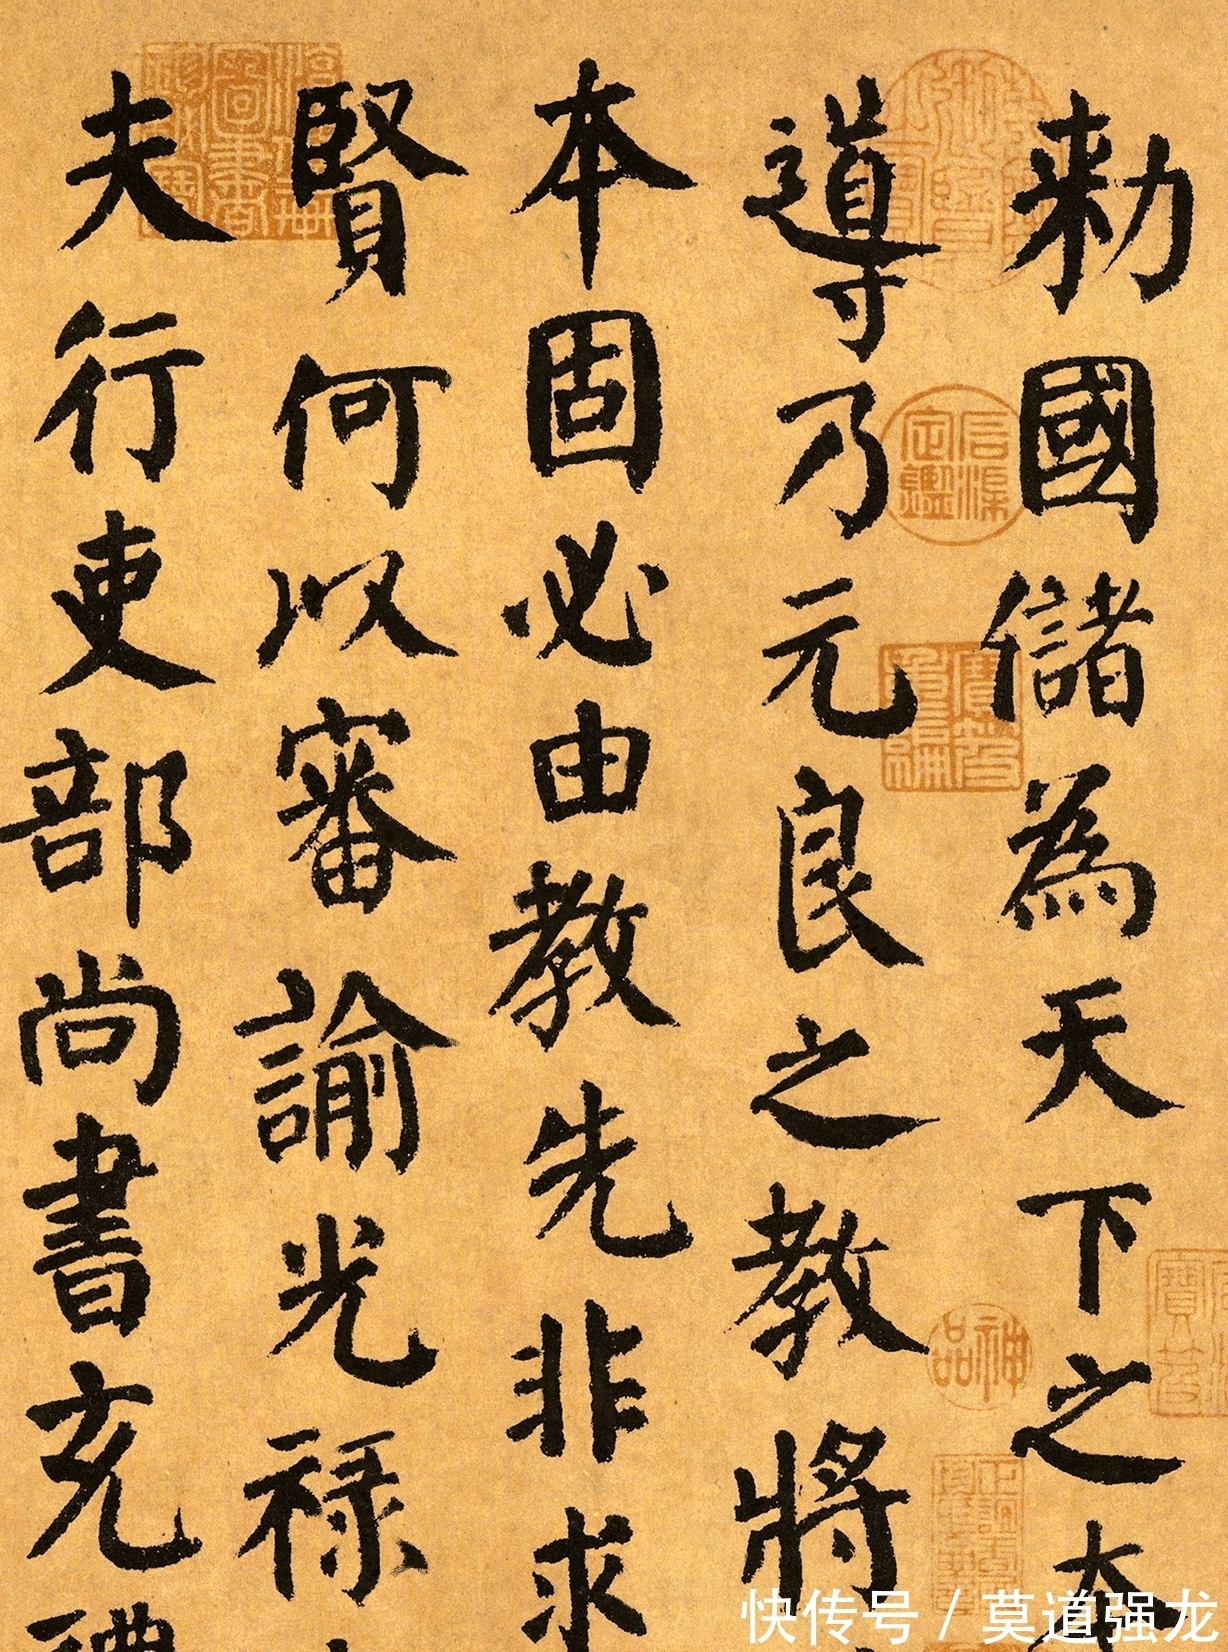 勑國儲為天下之本
導乃元良之教將
本固必由教先非求
賢何以審諭光禄
夫行吏部尚書充禮
神品
快传号 / 莫道强龙